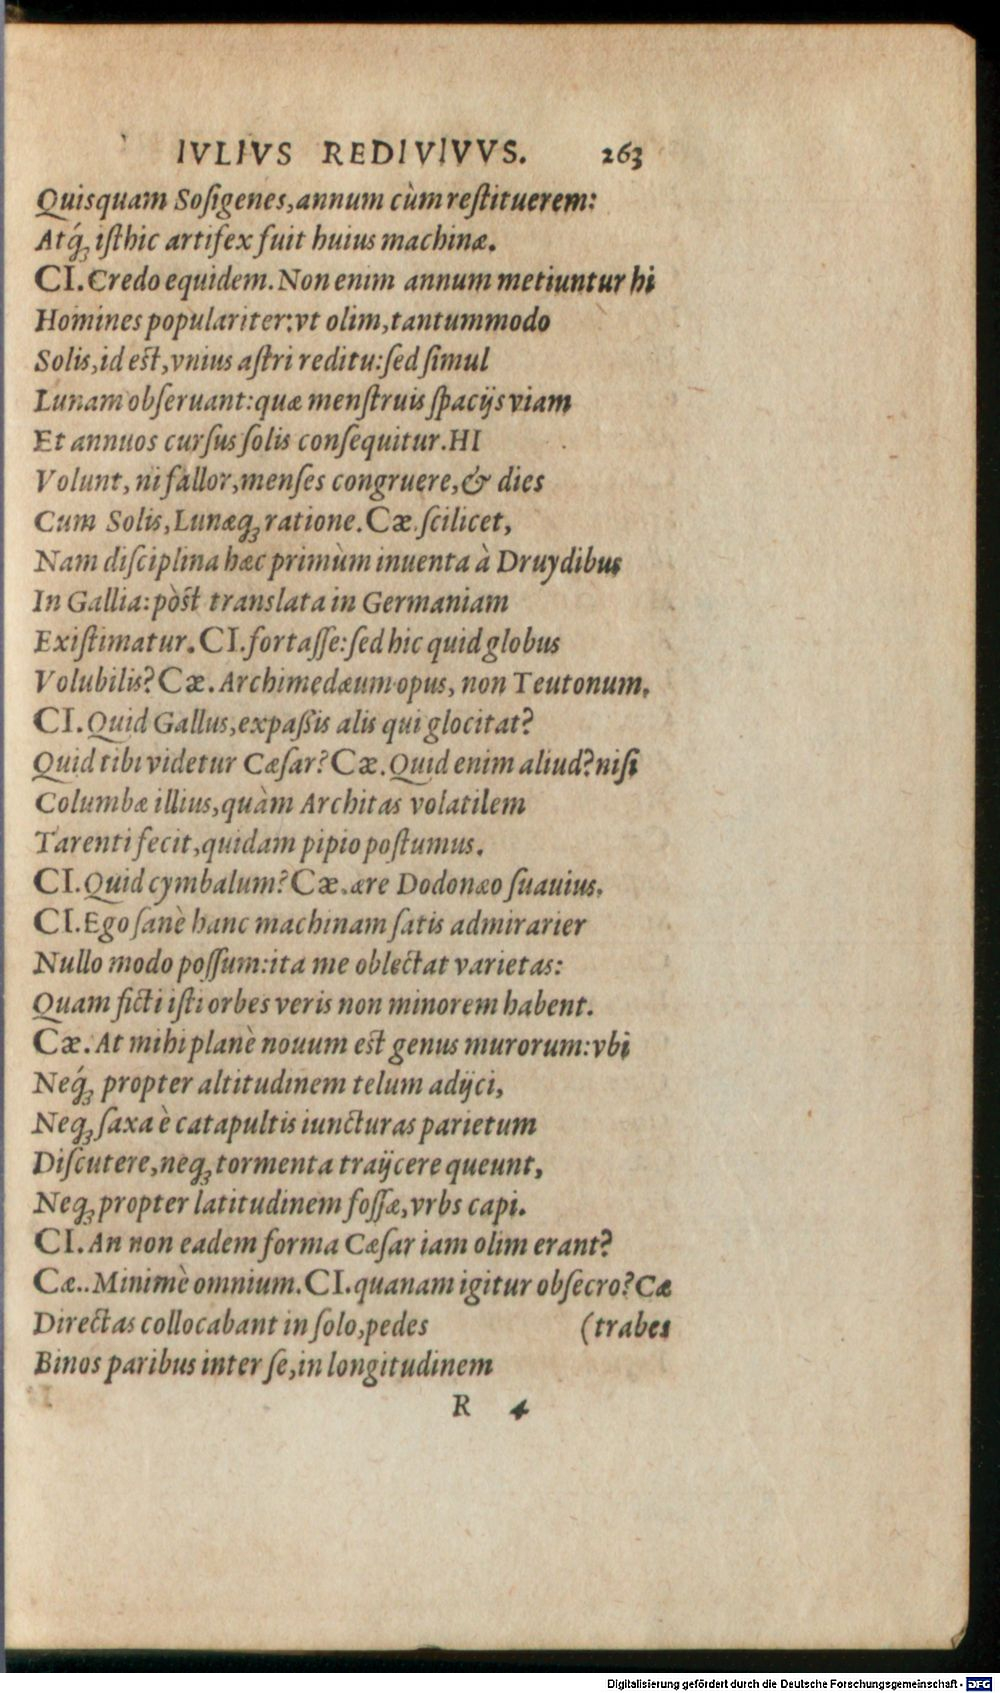 IVLIVS REDIVIVVS. 263
Quisquam Soſigenes, annum cùm reſtituerem:
Atq́ꝫ iſthic artifex fuit huius machinæ.
CI. Credo equidem. Non enim annum metiuntur hi
Homines populariter: vt olim, tantummodo
Solis, id eſt, vnius aſtri reditu: ſed ſimul
Lunam obſeruant: quæ menſtruis ſpacijs viam
Et annuos curſus ſolis conſequitur. HI
Volunt, ni fallor, menſes congruere, & dies
Cum Solis, Lunæqꝫ ratione. Cæ. ſcilicet,
Nam diſciplina hæc primùm inuenta à Druydibus
In Gallia: pòſt translata in Germaniam
Exiſtimatur. CI. fortaſſe: ſed hic quid globus
Volubilis? Cæ. Archimedæum opus, non Teutonum.
CI. Quid Gallus, expaßis alis qui glocitat?
Quid tibi videtur Cæſar? Cæ. Quid enim aliud? niſi
Columbæ illius, quàm Architas volatilem
Tarenti fecit, quidam pipio poſtumus.
CI. Quid cymbalum? Cæ. ære Dodonæo ſuauius.
CI. Ego ſanè hanc machinam ſatis admirarier
Nullo modo poſſum: ita me oblectat varietas:
Quam ficti iſti orbes veris non minorem habent.
Cæ. At mihi planè nouum eſt genus murorum: vbi
Neq́ꝫ propter altitudinem telum adijci,
Neqꝫ ſaxa è catapultis iuncturas parietum
Diſcutere, neqꝫ tormenta traijcere queunt,
Neqꝫ propter latitudinem foſſæ, vrbs capi.
CI. An non eadem forma Cæſar iam olim erant?
Cæ.. Minimè omnium. CI. quanam igitur obſecro? Cæ
Directas collocabant in ſolo, pedes (trabes
Binos paribus inter ſe, in longitudinem
R 4
Digitalisierung gefördert durch die Deutsche Forschungsgemeinschaft - DFG